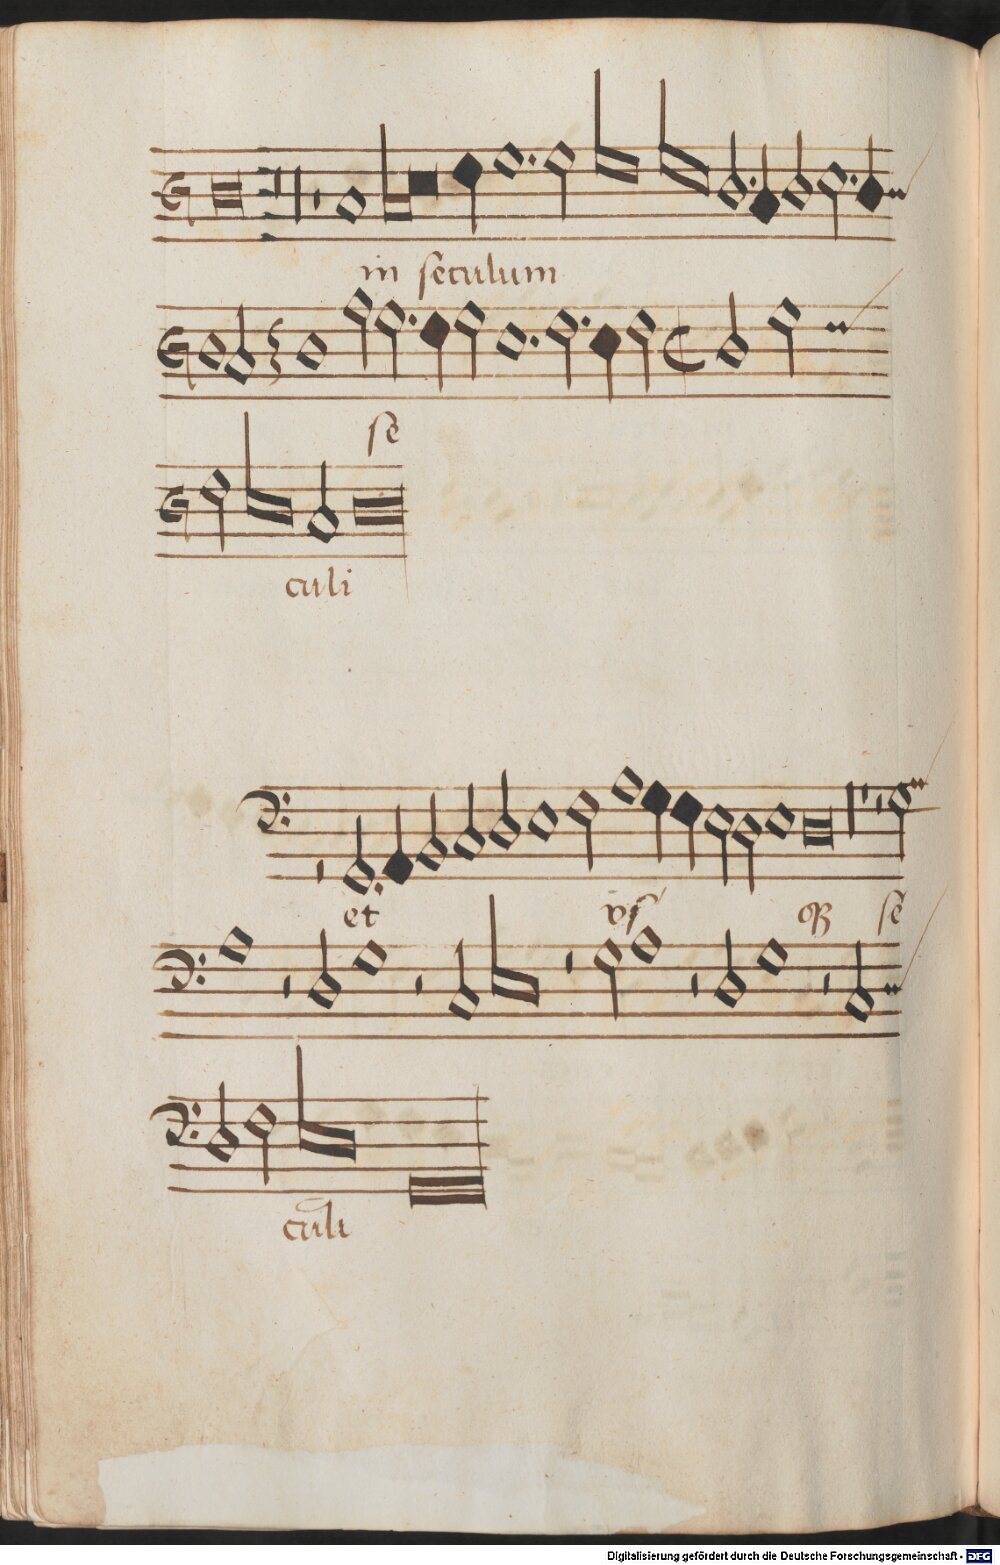 in seculum
se
culi
et vsqȝ se
culi
Digitalisierung gefördert durch die Deutsche Forschungsgemeinschaft - DFG